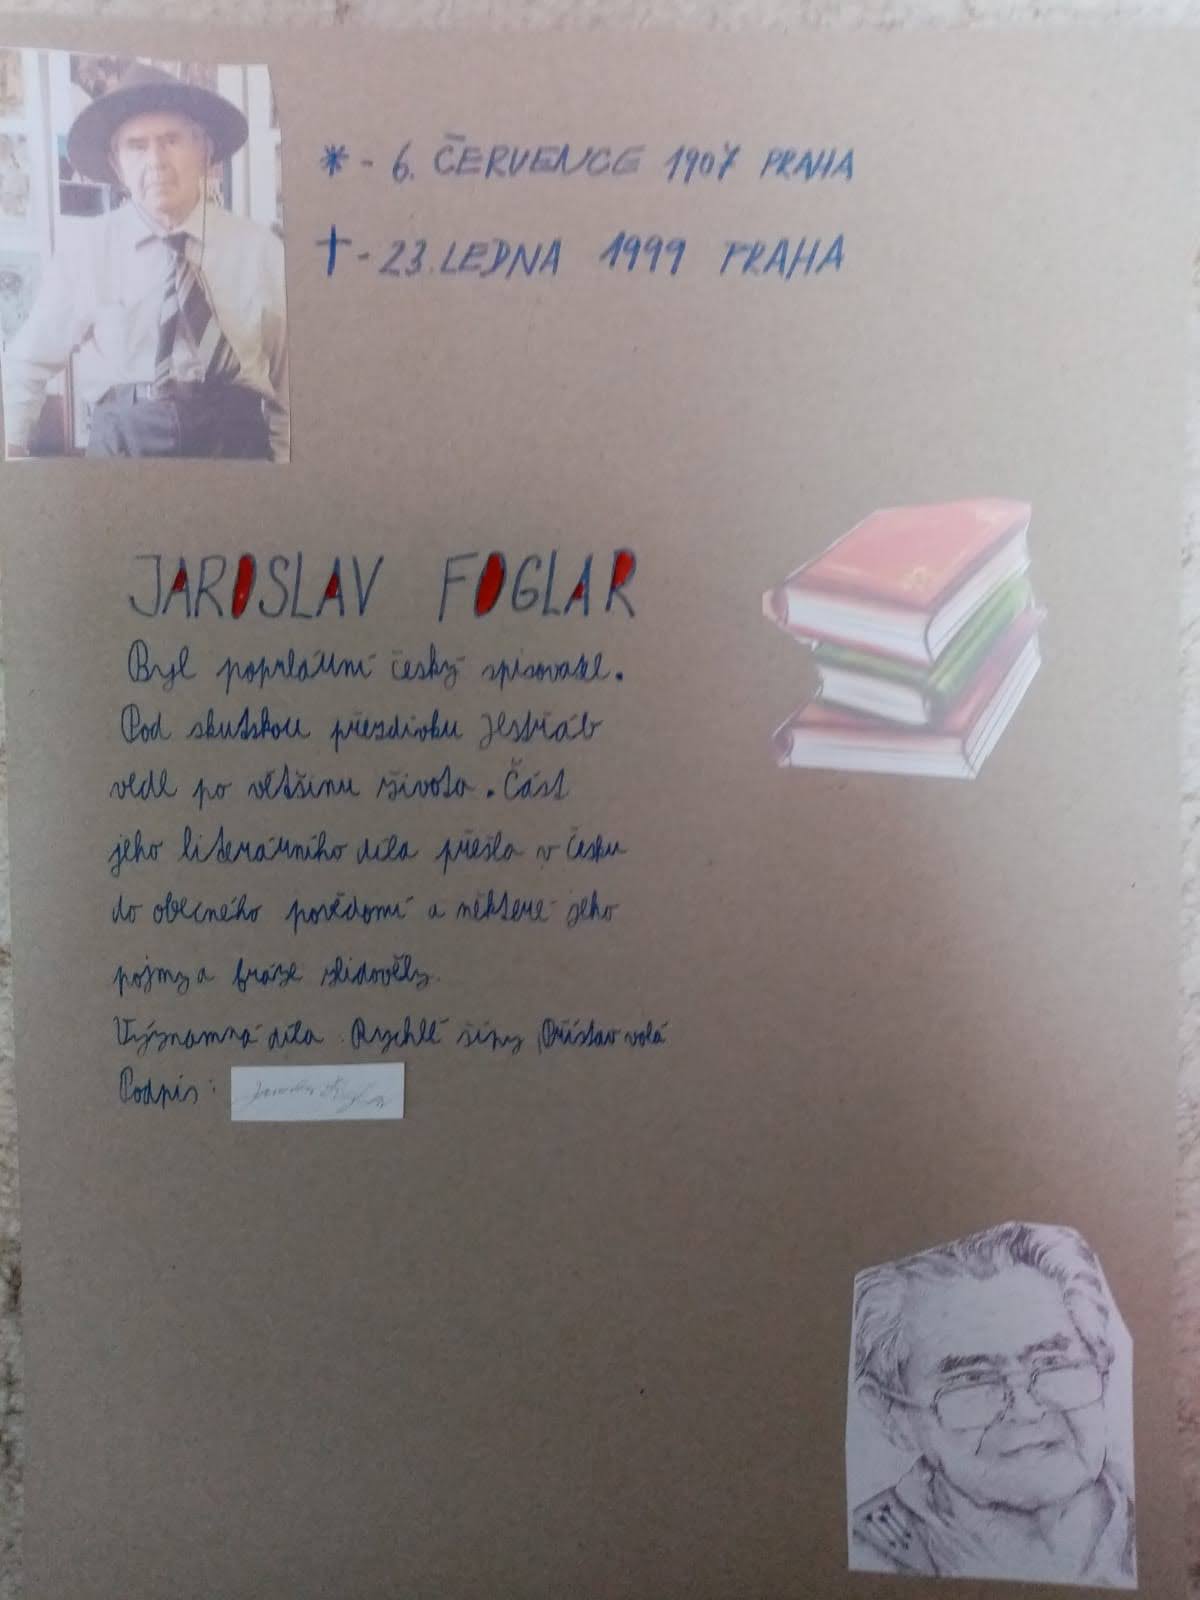 * - 6. ČERVENCE 1907 PRAHA
† - 23. LEDNA 1999 PRAHA
JAROSLAV FOGLAR
Byl populární český spisovatel.
Pod skutskou přezdívku Jestřáb
vedl po většinu života. Část
jeho literárního díla přešla v Česku
do obecného povědomí a některé jeho
pojmy a fráze zlidověly.
Významná díla Rychlé šípy, Přístav volá
Podpis: